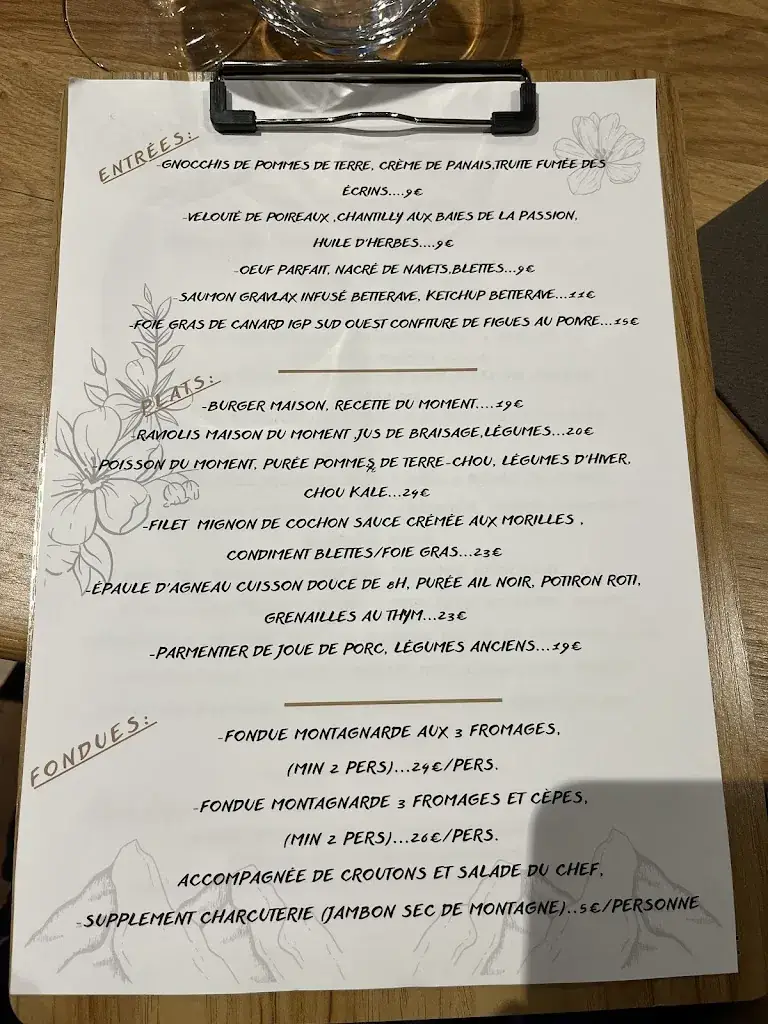 ENTRÉES:
-GNOCCHIS DE POMMES DE TERRE, CRÈME DE PANAIS,TRUITE FUMÉE DES
ÉCRINS....9€
-VELOUTÉ DE POIREAUX ,CHANTILLY AUX BAIES DE LA PASSION,
HUILE D'HERBES....9€
-OEUF PARFAIT, NACRÉ DE NAVETS,BLETTES...9€
-SAUMON GRAVLAX INFUSÉ BETTERAVE, KETCHUP BETTERAVE...11€
-FOIE GRAS DE CANARD IGP SUD OUEST CONFITURE DE FIGUES AU POIVRE...15€
PLATS:
-BURGER MAISON, RECETTE DU MOMENT....19€
-RAVIOLIS MAISON DU MOMENT ,JUS DE BRAISAGE,LÉGUMES...20€
-POISSON DU MOMENT, PURÉE POMMES DE TERRE-CHOU, LÉGUMES D'HIVER,
CHOU KALE...24€
-FILET MIGNON DE COCHON SAUCE CRÉMÉE AUX MORILLES ,
CONDIMENT BLETTES/FOIE GRAS...23€
-ÉPAULE D'AGNEAU CUISSON DOUCE DE 8H, PURÉE AIL NOIR, POTIRON ROTI,
GRENAILLES AU THYM...23€
-PARMENTIER DE JOUE DE PORC, LÉGUMES ANCIENS...19€
FONDUES:
-FONDUE MONTAGNARDE AUX 3 FROMAGES,
(MIN 2 PERS)...24€/PERS.
-FONDUE MONTAGNARDE 3 FROMAGES ET CÈPES,
(MIN 2 PERS)...26€/PERS.
ACCOMPAGNÉE DE CROUTONS ET SALADE DU CHEF,
-SUPPLEMENT CHARCUTERIE (JAMBON SEC DE MONTAGNE)..5€/PERSONNE